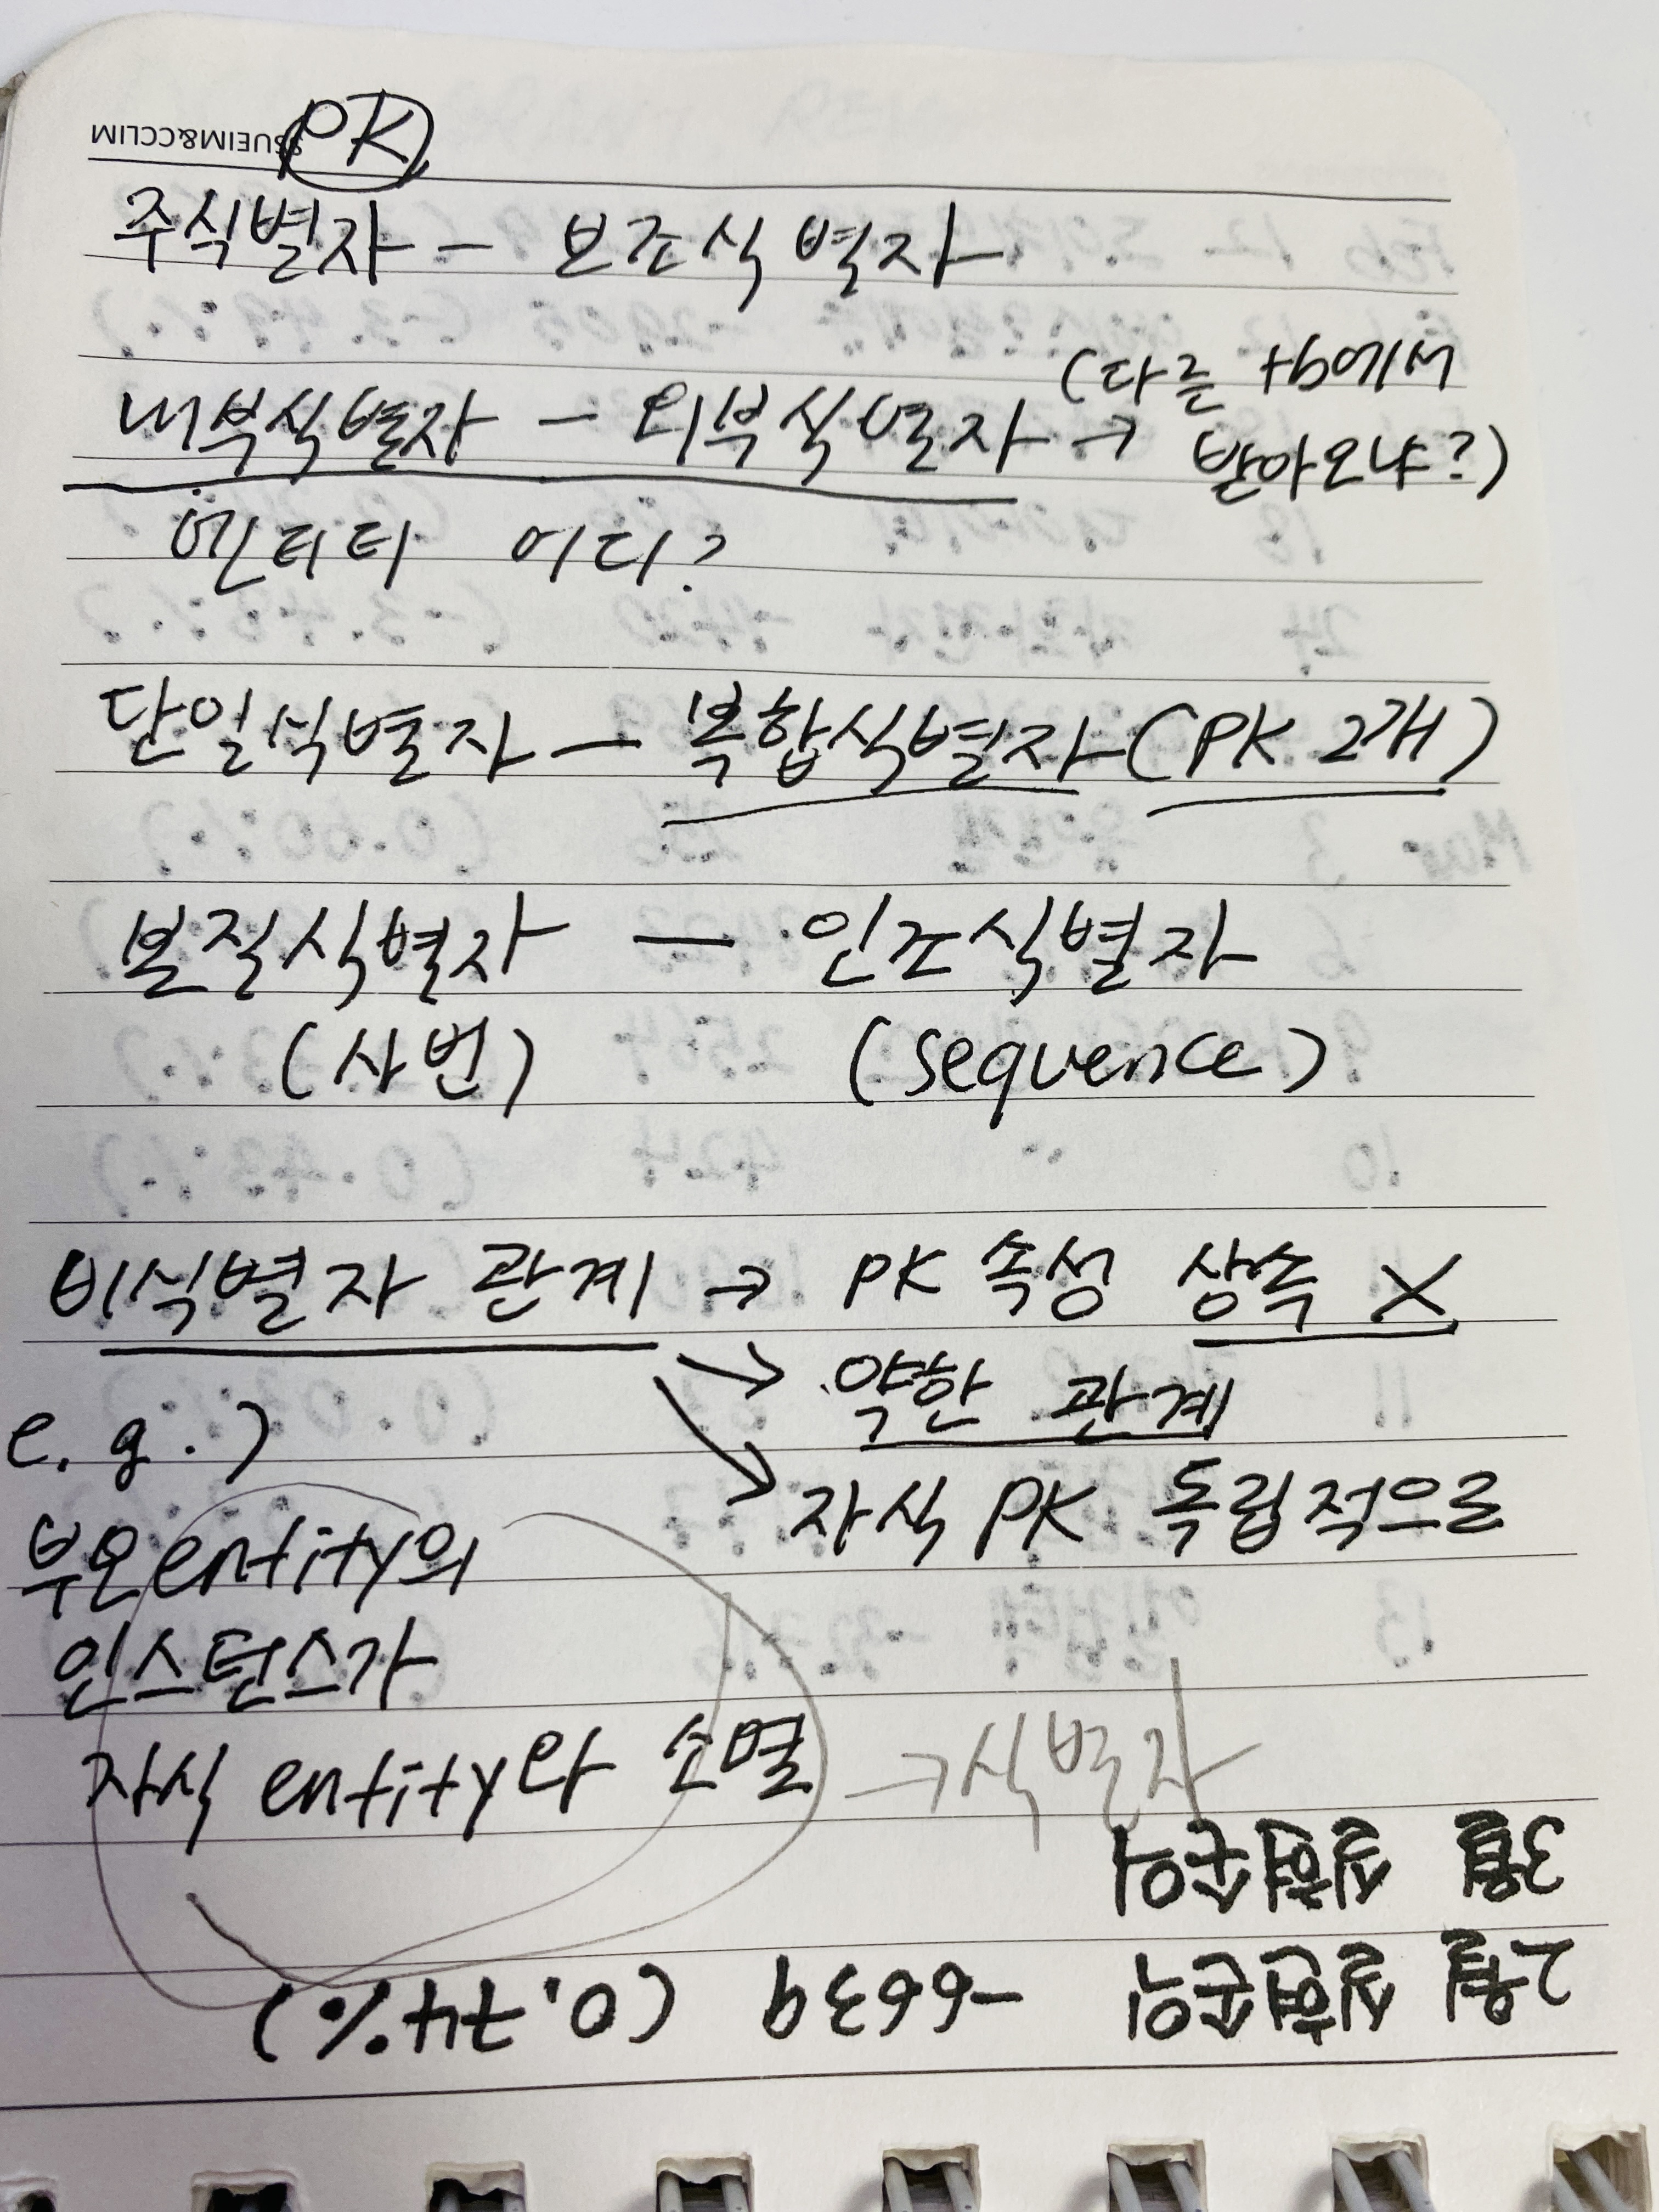 PK
SSUEIM&CCLIM
주식별자 - 보조식별자
내부식별자 - 외부식별자 → (다른 tb에서
받아오냐?)
엔터티 어디?
단일식별자 - 복합식별자 (PK 2개)
본질식별자 - 인조식별자
(사번) (sequence)
비식별자 관계 → PK 속성 상속 X
→ 약한 관계
e.g.)
→ 자식 PK 독립적으로
부모entity의
인스턴스가
자식 entity와 소멸 → 식별자
3월 실현손익
2월 실현손익 -6639 (0.74%)